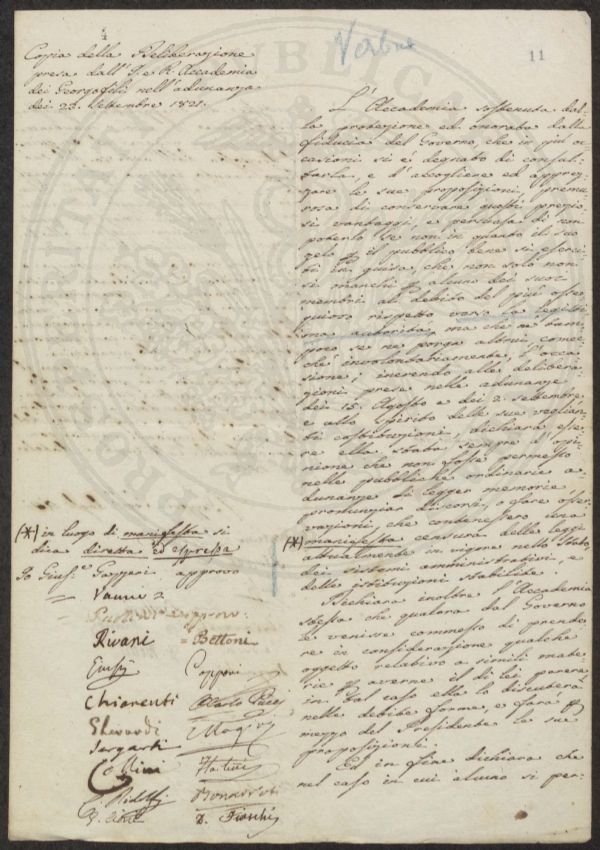 11
Copia della Deliberazione
presa dall' I. e R. Accademia
dei Georgofili nell' adunanza
dei 23. Settembre 1821.
L'Accademia sostenuta dal-
la protezione ed onorata dalla
fiducia del Governo, che in più oc-
casioni si è degnato di consul-
tarla, e d'accogliere ed apprez-
zare le sue proposizioni, premu-
rosa di conservare questi prezio-
si vantaggi, e persuasa di non
poterlo se non in quanto il suo
zelo p il pubblico bene si eserci-
ti in guisa, che non solo non
si manchi p alcuno dei suoi
membri al debito del più osse-
quioso rispetto verso la legitti-
ma autorità, ma che ne tam-
poco se ne porga altrui, comec-
chè involontariamente, l'occa-
sione; inerendo alle delibera-
zioni prese nelle adunanze
dei 15. Agosto e dei 2. Settembre,
e allo spirito delle sue veglian-
ti costituzioni, dichiara esse-
re ella stata sempre d'opi-
nione che non fosse permesso
nelle pubbliche ordinarie a-
dunanze di legger memorie
pronunziar discorsi, o fare osser-
vazioni, che contenessero una
(*) manifesta censura delle leggi
attualmente in vigore nello Stato,
dei sistemi amministrativi, e
delle istituzioni stabilite.
Dichiara inoltre l'Accademia
stessa che qualora dal Governo
le venisse commesso di prende-
re in considerazione qualche
oggetto relativo a simili mate-
rie p averne il di lei parere
in tal caso ella lo discuterà
nelle debite forme, e farà p
mezzo del Presidente le sue
proposizioni.
Ed in fine dichiara che
nel caso in cui alcuno si per-
(*) in luogo di manifesta si
dica diretta ed espressa
Io Gius.e Gazzeri approvo
Rivani = Bettoni
Capponi
Chiarenti Carlo Pucci
Gherardi
Sergardi
C. Ridolfi